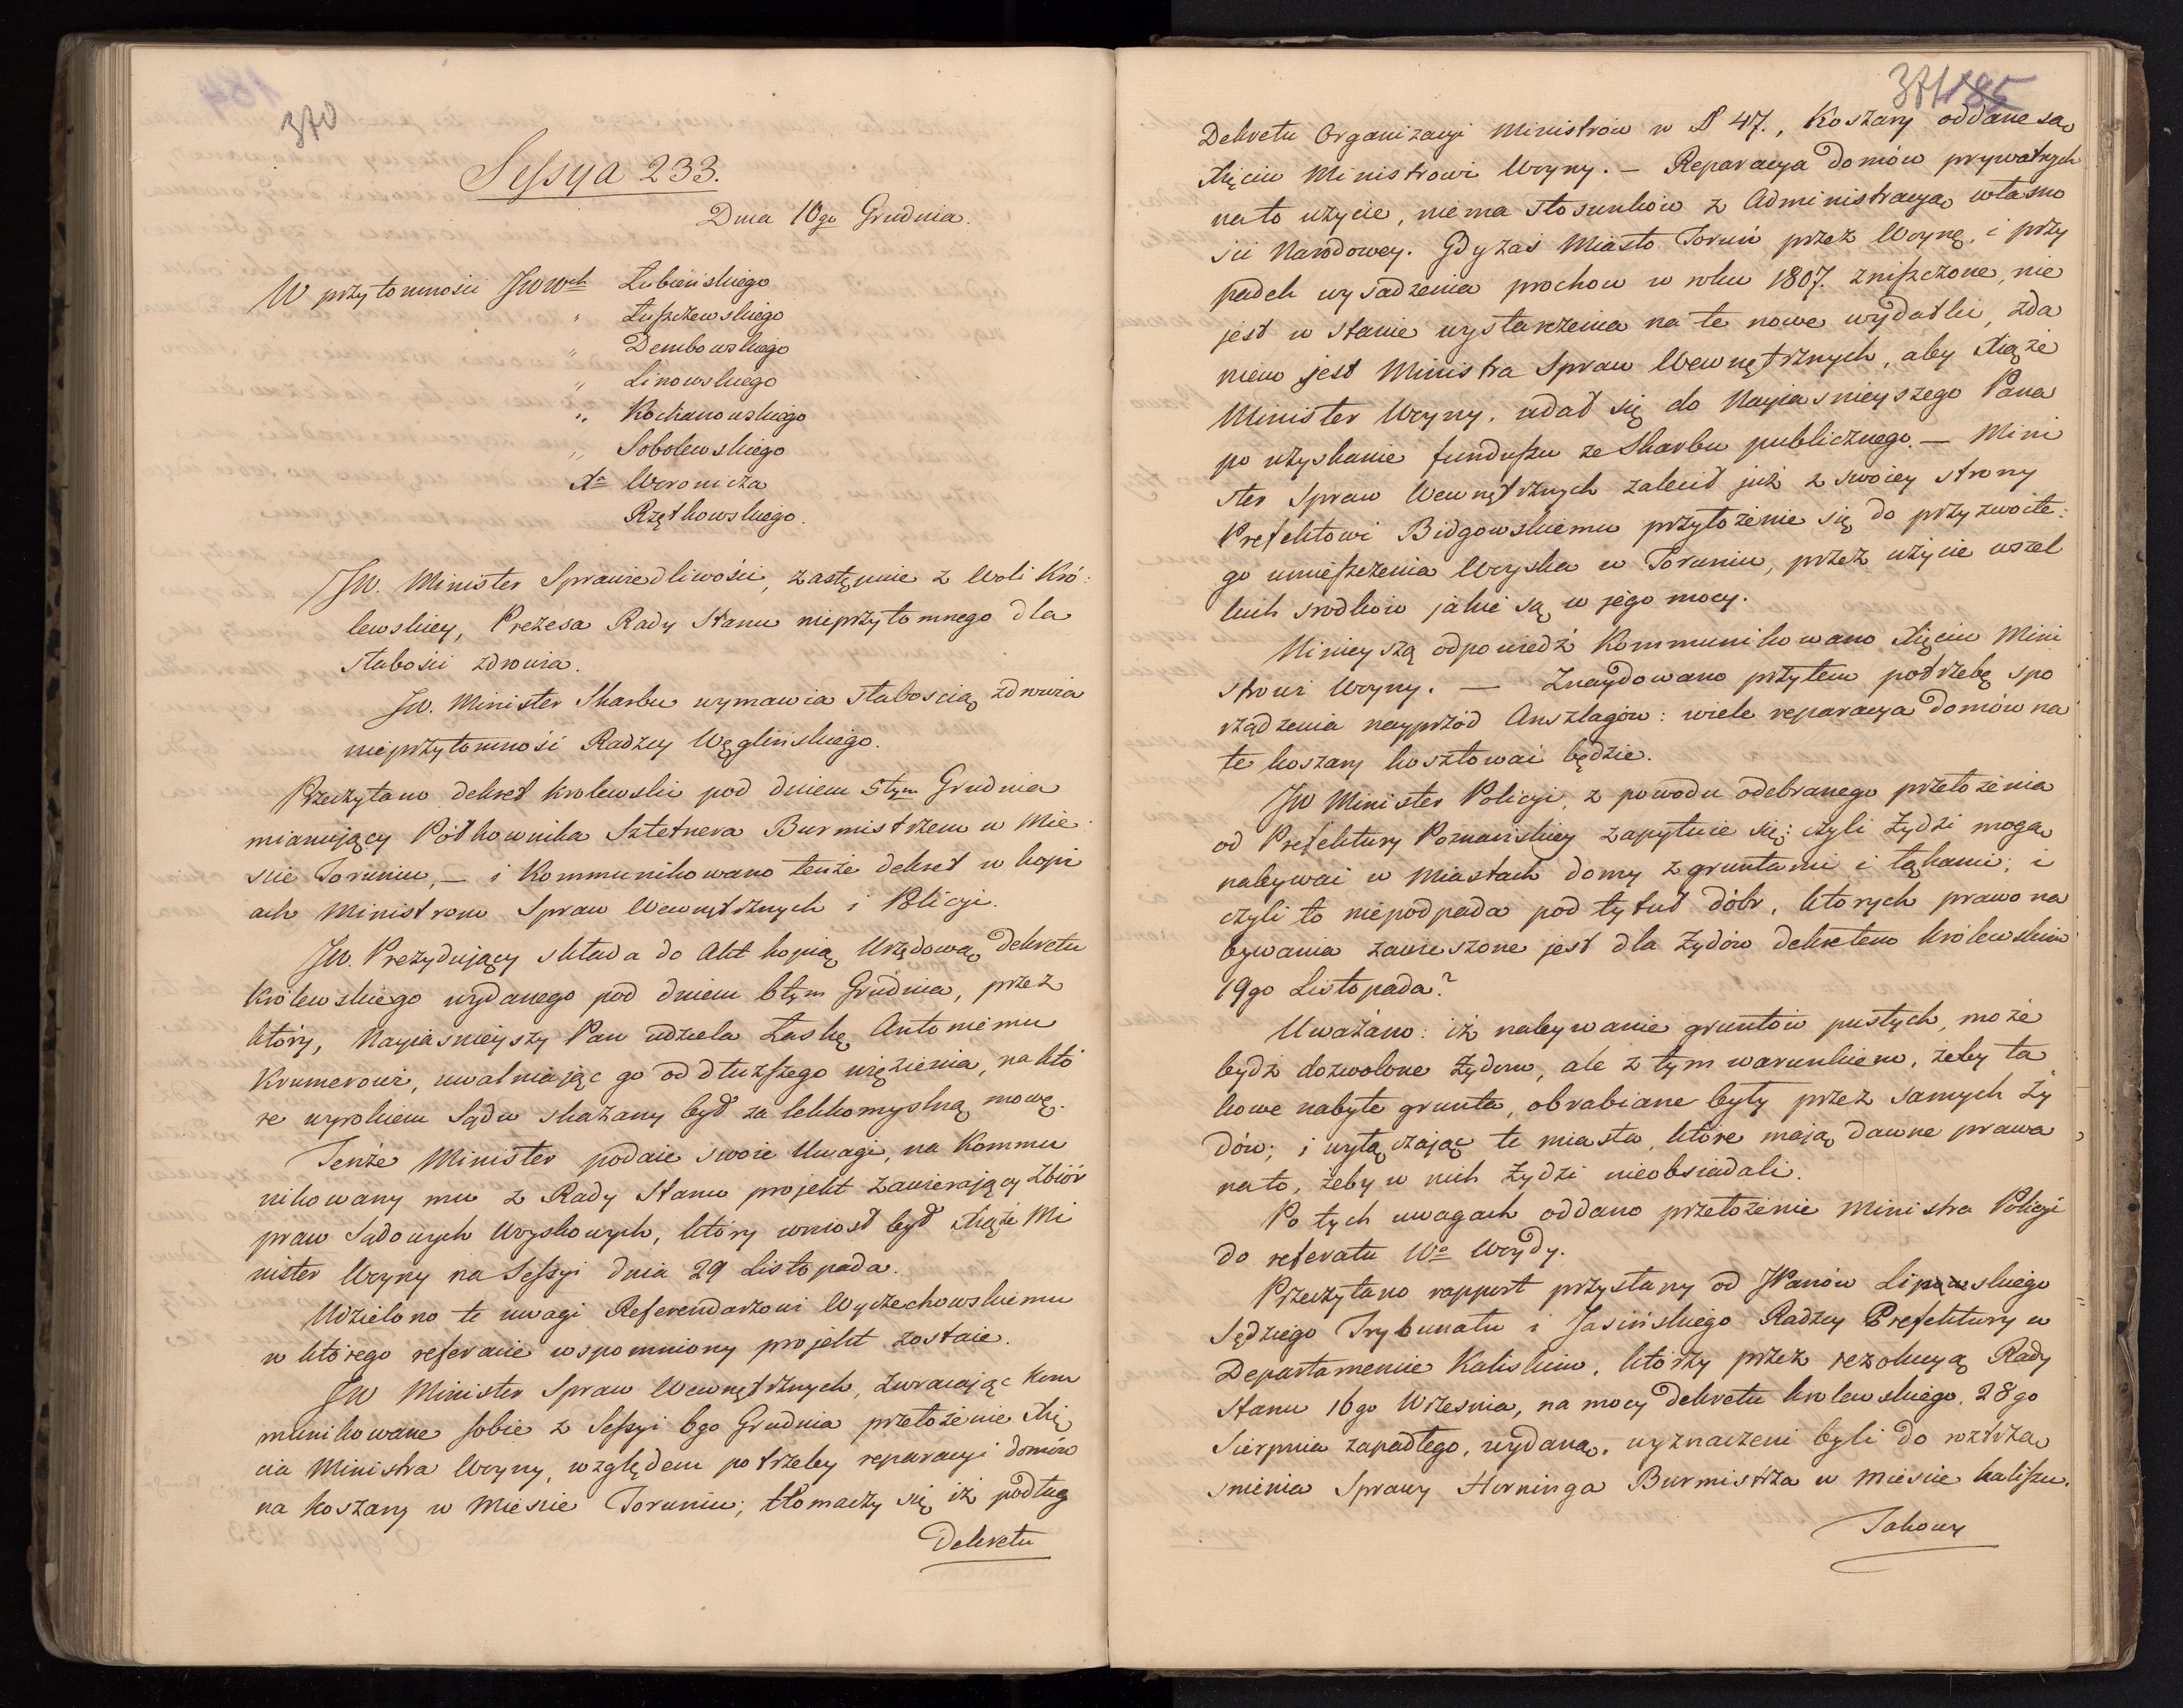 370
Sessya 233.
Dnia 10go Grudnia.
W przytomnosci JWWch Łubieńskiego
" Łuszczewskiego
" Dembowskiego
" Linowskiego
" Kochanowskiego
" Sobolewskiego
Xa Woronicza
Rzętkowskiego.
JW. Minister Sprawiedliwości, zastępuie z Woli Kró:
lewskiey, Prezesa Rady Stanu nieprzytomnego dla
słabości zdrowia.
JW. Minister Skarbu wymawia słabością zdrowia
nieprzytomność Radzcy Węglińskiego.
Przeczytano dekret krolewski pod dniem 5tym Grudnia
mianujący Półkownika Sztetnera Burmistrzem w Mie:
scie Toruniu, — i Kommunikowano tenże dekret w kopi
ach Ministrom Spraw Wewnętrznych i Policyi.
JW. Prezydujący składa do Akt kopią Urzędową Dekretu
Królewskiego wydanego pod dniem 6tym Grudnia, przez
który, Nayiasnieyszy Pan udziela Łaskę Antoniemu
Krumerowi, uwalniając go od dłuższego więzienia, na któ
re wyrokiem Sądu skazany był za lekkomyslną mowę.
Tenże Minister podaie swoie Uwagi, na Kommu
nikowany mu z Rady Stanu projekt zawierający Zbiór
praw Sądowych Woyskowych, który wniosł był Xiąże Mi
nister Woyny na Sessyi dnia 29 Listopada.
Udzielono te uwagi Referendarzowi Wyczechowskiemu
w którego referacie wspomniony projekt zostaie.
JW Minister Spraw Wewnętrznych, zwracając kom
munikowane sobie z Sessyi 6go Grudnia przełożenie Xię
cia Ministra Woyny, względem potrzeby reparacyi domów
na koszary w Miescie Toruniu; tłomaczy się iż podług
Dekretu
371 185
Dekretu Organizacyi Ministrów w § 47., Koszary oddane są
Xięciu Ministrowi Woyny. — Reparacya Domów prywatnych
na to użycie, niema stosunków z Administracyą własno
ści Narodowey. Gdy zaś Miasto Toruń przez Woynę, i przy
padek wysadzenia prochow w roku 1807. zniszczone, nie
jest w stanie wystarczenia na te nowe wydatki, zda
niem jest Ministra Spraw Wewnętrznych, aby Xiąże
Minister Woyny, udał się do Nayiasnieyszego Pana
po uzyskanie funduszu ze Skarbu publicznego. — Mini
ster Spraw Wewnętrznych zalecił już z swoiey strony
Prefektowi Bidgowskiemu przyłożenie się do przyzwoite:
go umieszczenia Woyska w Toruniu, przez użycie wszel
kich srodków jakie są w jego mocy.
Ninieyszą odpowiedź Kommunikowano Xięciu Mini
strowi Woyny. — Znaydowano przytem potrzebę spo
rządzenia nayprzód Anszlagów: wiele reparacya Domów na
te koszary kosztować będzie.
JW Minister Policyi, z powodu odebranego przełożenia
od Prefektury Poznańskiey zapytuie się: czyli Żydzi mogą
nabywać w Miastach domy z gruntami i łąkami; i
czyli to niepodpada pod tytuł dóbr, których prawo na
bywania zawieszone jest dla Żydów dekretem królewskim
19go Listopada?
Uważano: iż nabywanie gruntów pustych, może
bydź dozwolone Żydom, ale z tym warunkiem, żeby ta
kowe nabyte grunta, obrabiane były przez samych Ży
dów; i wyłączając te miasta, które mają dawne prawa
na to, żeby w nich Żydzi nieobsiadali.
Po tych uwagach oddano przełożenie Ministra Policyi
do referatu Wo Woydy.
Przeczytano rapport przysłany od JPanów Lipowskiego
Sędziego Trybunału i Jasińskiego Radzcy Prefektury w
Departamencie Kaliskim, którzy przez rezolucyą Rady
Stanu 16go Wrzesnia, na mocy Dekretu krolewskiego, 28go
Sierpnia zapadłego, wydaną, wyznaczeni byli do roztrzą
snienia Sprawy Horninga Burmistrza w Miescie kaliszu.
Takowy